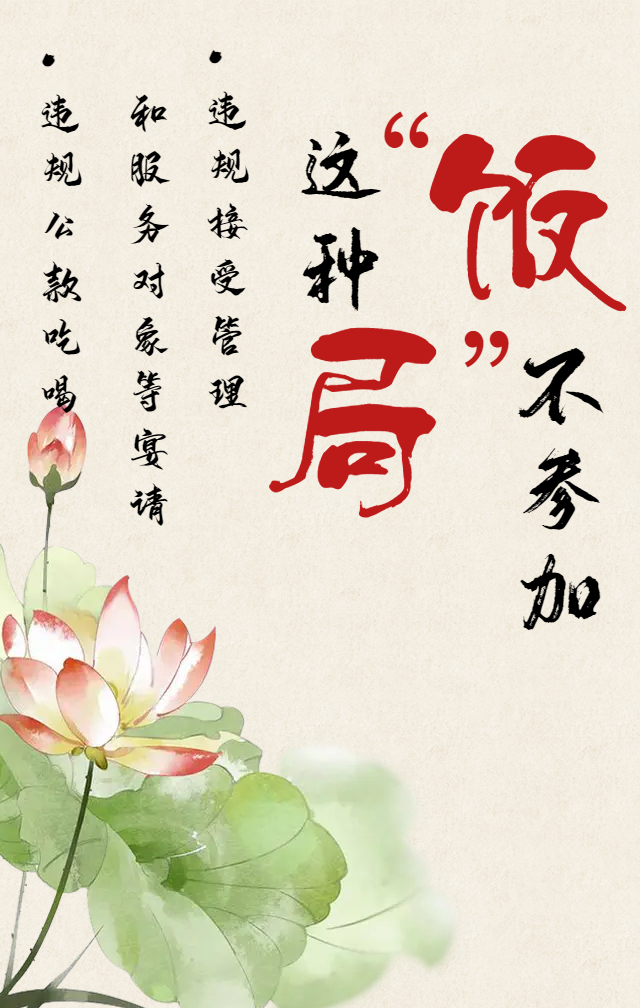 这种“饭局”不参加
• 违规接受管理
和服务对象等宴请
• 违规公款吃喝